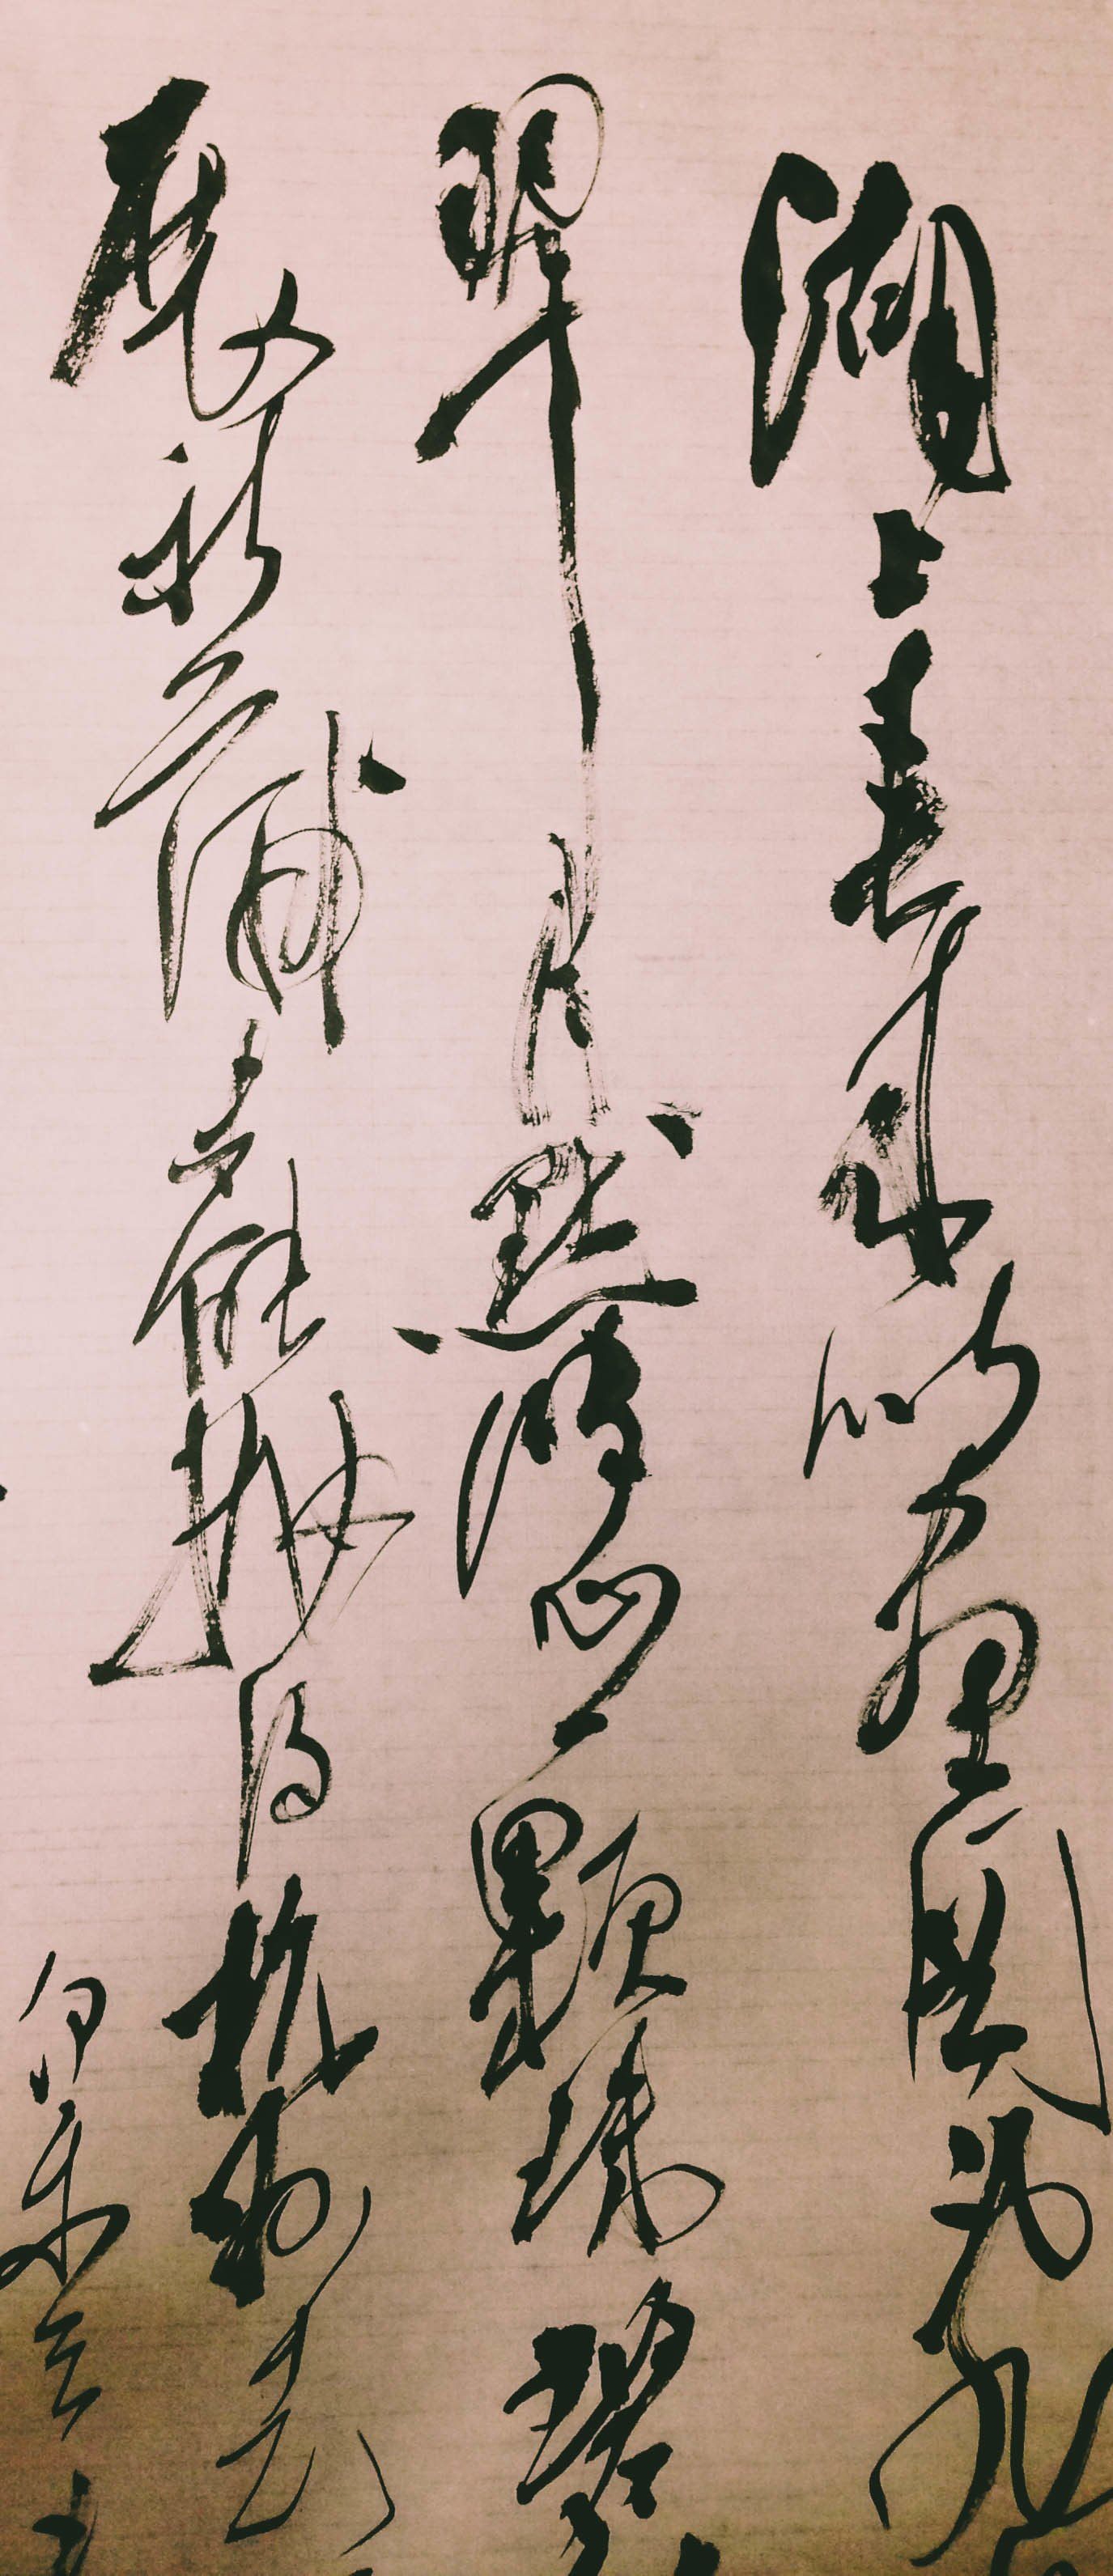 湖上春來似畫圖亂
翠月點波心一顆珠碧
展新蒲未能拋得杭州去
白樂天